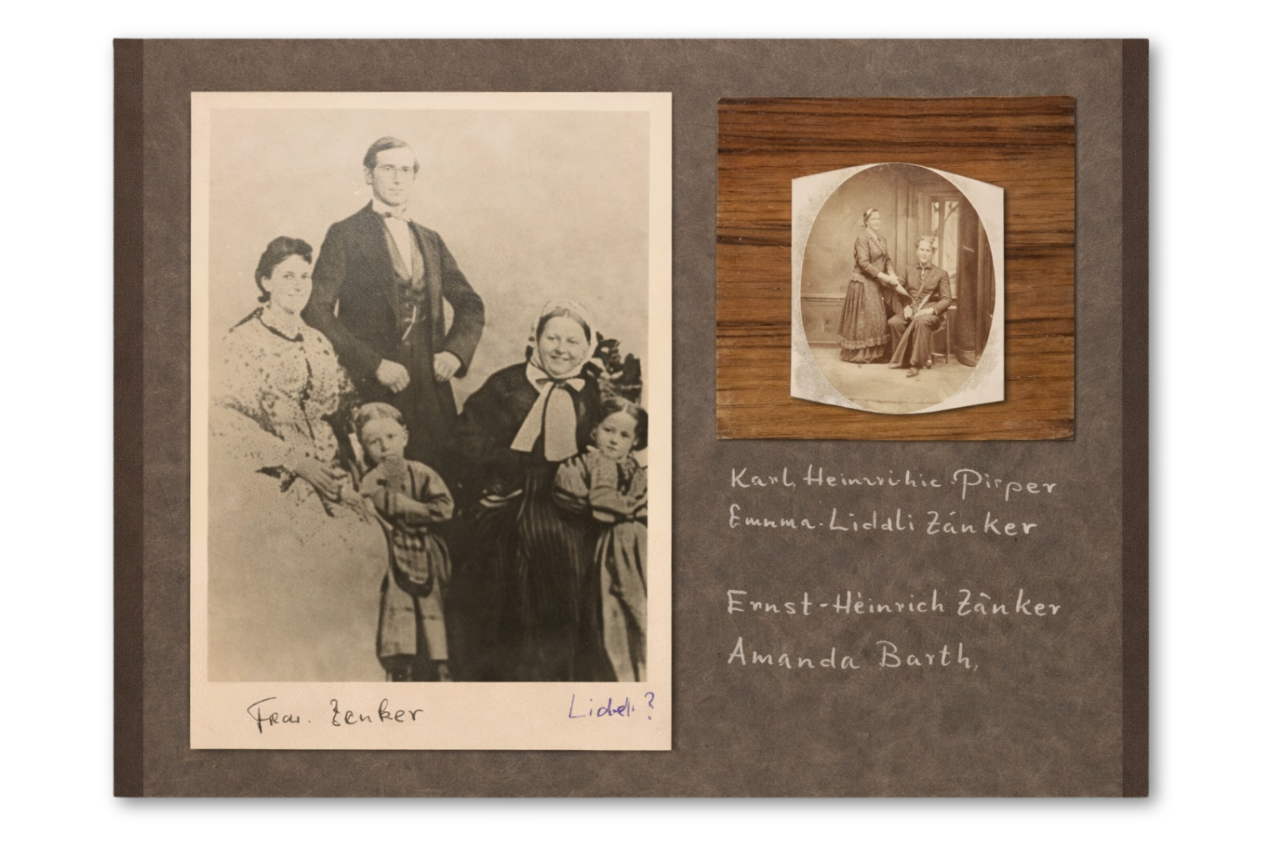 Frau. Zenker
Liddli ?
Karl, Heinrichic Pirper
Emnma-Liddli Zánker
Ernst-Hèinrich Zànker
Amanda Barth,